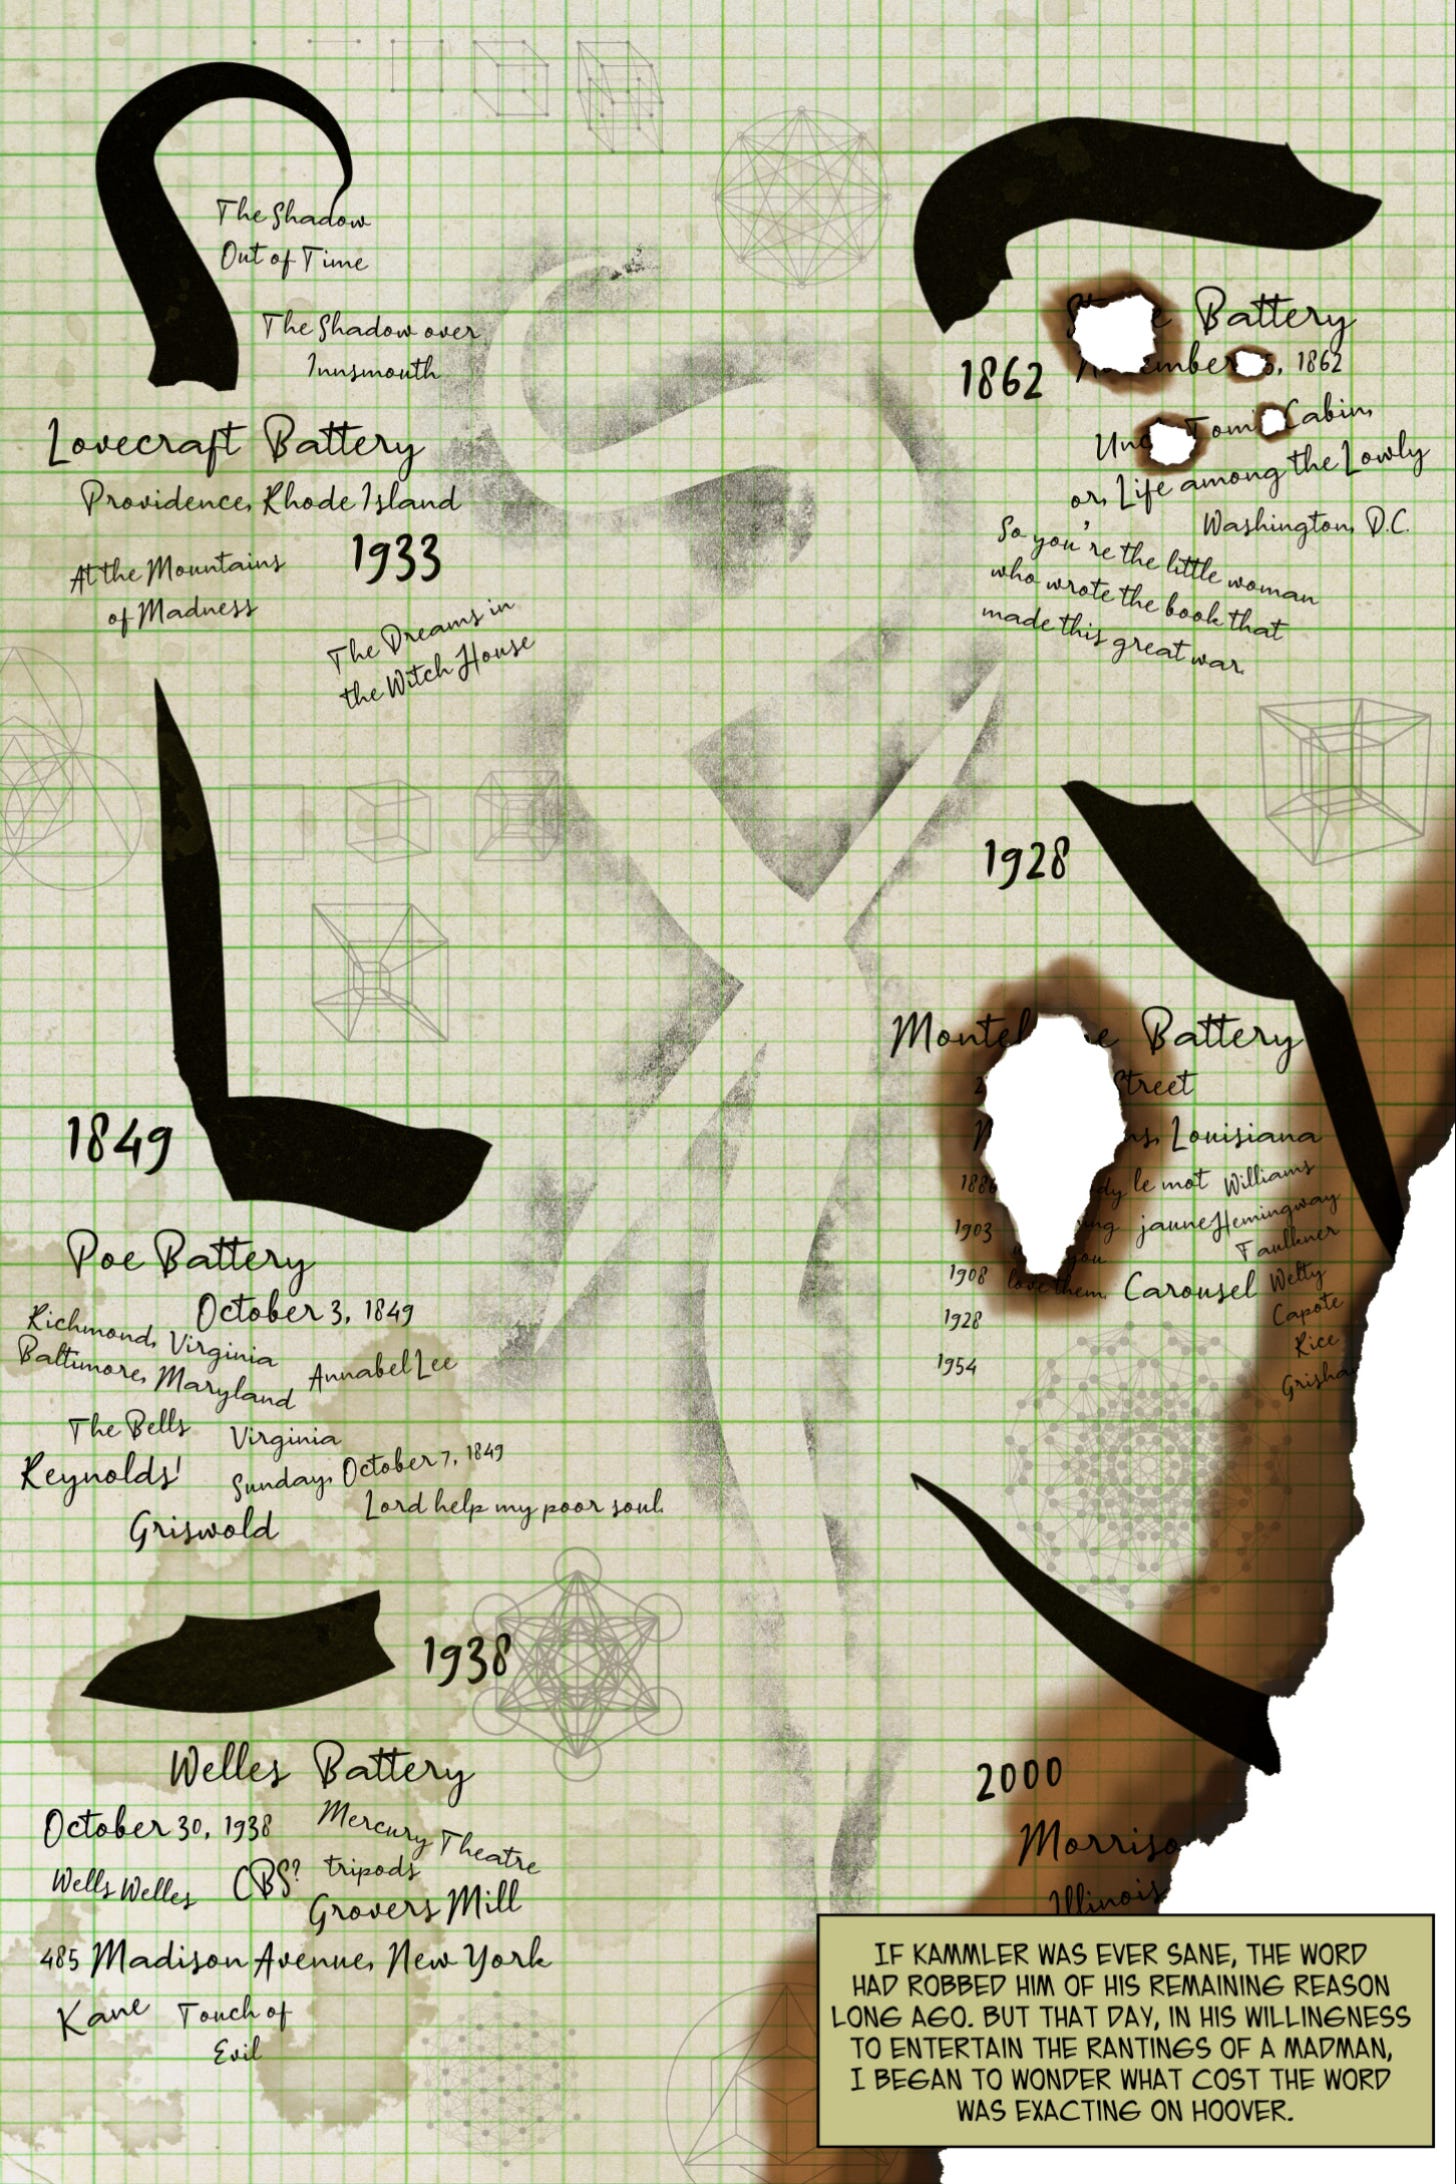 The Shadow
Out of Time
The Shadow over
Innsmouth
Lovecraft Battery
Providence, Rhode Island
1933
At the Mountains
of Madness
The Dreams in
the Witch House
1849
Poe Battery
October 3, 1849
Richmond, Virginia
Baltimore, Maryland
Annabel Lee
The Bells
Virginia
Reynolds!
Sunday, October 7, 1849
Lord help my poor soul.
Griswold
1938
Welles Battery
October 30, 1938
Mercury Theatre
Wells Welles
CBS?
tripods
Grovers Mill
485 Madison Avenue, New York
Kane
Touch of
Evil
Battery
1862
1862
Tom
Cabin,
or, Life among the Lowly
Washington, D.C.
So you're the little woman
who wrote the book that
made this great war.
1928
Battery
Street
Louisiana
le mot
Williams
1903
jaune
Hemingway
Faulkner
you
1908
love them.
Carousel
Welty
Capote
1928
Rice
1954
2000
Illinois
IF KAMMLER WAS EVER SANE, THE WORD
HAD ROBBED HIM OF HIS REMAINING REASON
LONG AGO. BUT THAT DAY, IN HIS WILLINGNESS
TO ENTERTAIN THE RANTINGS OF A MADMAN,
I BEGAN TO WONDER WHAT COST THE WORD
WAS EXACTING ON HOOVER.